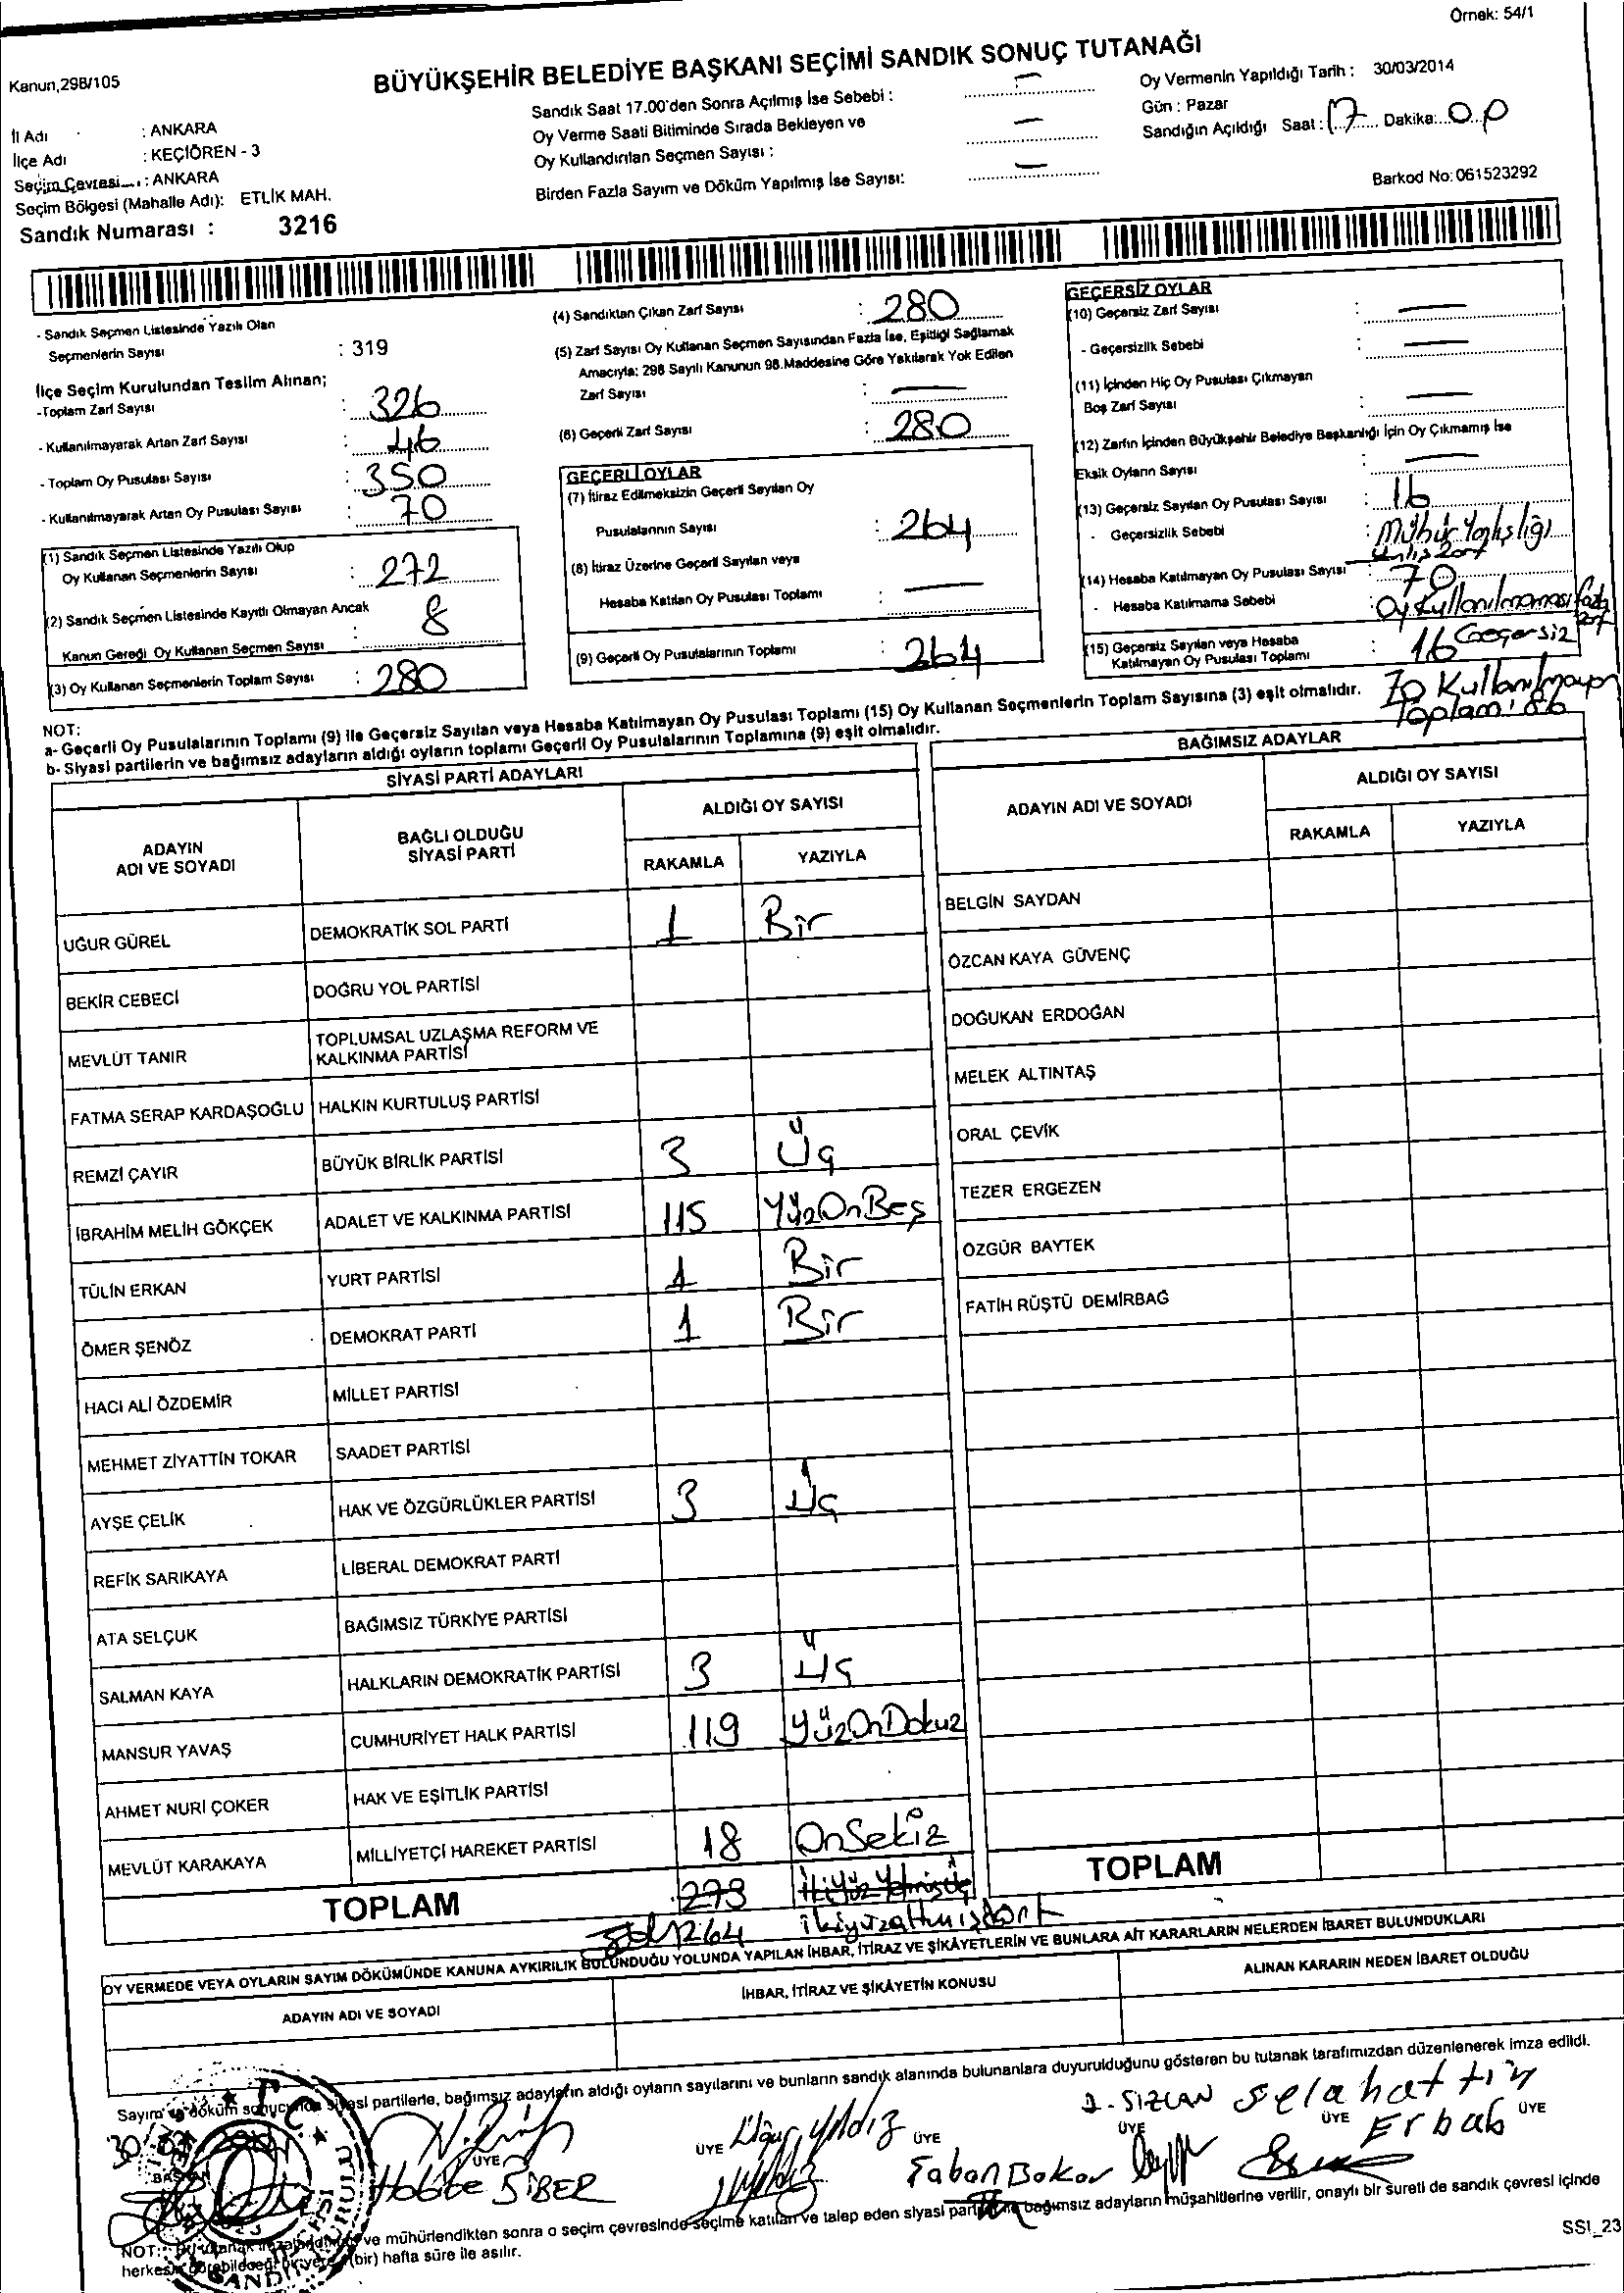 Örnek: 54/1
Kanun,298/105
BÜYÜKŞEHİR BELEDİYE BAŞKANI SEÇİMİ SANDIK SONUÇ TUTANAĞI
İl Adı : ANKARA
İlçe Adı : KEÇİÖREN - 3
Seçim Çevresi : ANKARA
Seçim Bölgesi (Mahalle Adı): ETLİK MAH.
Sandık Numarası : 3216
Sandık Saat 17.00'den Sonra Açılmış İse Sebebi : —
Oy Verme Saati Bitiminde Sırada Bekleyen ve
Oy Kullandırılan Seçmen Sayısı : —
Birden Fazla Sayım ve Döküm Yapılmış İse Sayısı: —
Oy Vermenin Yapıldığı Tarih : 30/03/2014
Gün : Pazar
Sandığın Açıldığı Saat : 17 Dakika: 00
Barkod No: 061523292
- Sandık Seçmen Listesinde Yazılı Olan
Seçmenlerin Sayısı : 319
İlçe Seçim Kurulundan Teslim Alınan;
-Toplam Zarf Sayısı : 326
- Kullanılmayarak Artan Zarf Sayısı : 46
- Toplam Oy Pusulası Sayısı : 350
- Kullanılmayarak Artan Oy Pusulası Sayısı : 70
(1) Sandık Seçmen Listesinde Yazılı Olup
Oy Kullanan Seçmenlerin Sayısı : 272
(2) Sandık Seçmen Listesinde Kayıtlı Olmayan Ancak
Kanun Gereği Oy Kullanan Seçmen Sayısı : 8
(3) Oy Kullanan Seçmenlerin Toplam Sayısı : 280
(4) Sandıktan Çıkan Zarf Sayısı : 280
(5) Zarf Sayısı Oy Kullanan Seçmen Sayısından Fazla İse, Eşitliği Sağlamak
Amacıyla; 298 Sayılı Kanunun 98.Maddesine Göre Yakılarak Yok Edilen
Zarf Sayısı : —
(6) Geçerli Zarf Sayısı : 280
GEÇERLİ OYLAR
(7) İtiraz Edilmeksizin Geçerli Sayılan Oy
Pusulalarının Sayısı : 264
(8) İtiraz Üzerine Geçerli Sayılan veya
Hesaba Katılan Oy Pusulası Toplamı : —
(9) Geçerli Oy Pusulalarının Toplamı : 264
GEÇERSİZ OYLAR
(10) Geçersiz Zarf Sayısı : —
- Geçersizlik Sebebi : —
(11) İçinden Hiç Oy Pusulası Çıkmayan
Boş Zarf Sayısı : —
(12) Zarfın İçinden Büyükşehir Belediye Başkanlığı İçin Oy Çıkmamış İse
Eksik Oyların Sayısı : —
(13) Geçersiz Sayılan Oy Pusulası Sayısı : 16
- Geçersizlik Sebebi : Mühür Yanlışlığı
(14) Hesaba Katılmayan Oy Pusulası Sayısı : 70
- Hesaba Katılmama Sebebi : Oy Kullanılmaması
(15) Geçersiz Sayılan veya Hesaba
Katılmayan Oy Pusulası Toplamı : 16 Geçersiz
70 Kullanılmayan
Toplam: 86
NOT:
a- Geçerli Oy Pusulalarının Toplamı (9) ile Geçersiz Sayılan veya Hesaba Katılmayan Oy Pusulası Toplamı (15) Oy Kullanan Seçmenlerin Toplam Sayısına (3) eşit olmalıdır.
b- Siyasi partilerin ve bağımsız adayların aldığı oyların toplamı Geçerli Oy Pusulalarının Toplamına (9) eşit olmalıdır.
SİYASİ PARTİ ADAYLARI
ADAYIN ADI VE SOYADI BAĞLI OLDUĞU SİYASİ PARTİ ALDIĞI OY SAYISI
RAKAMLA YAZIYLA
UĞUR GÜREL DEMOKRATİK SOL PARTİ 1 Bir
BEKİR CEBECİ DOĞRU YOL PARTİSİ
MEVLÜT TANIR TOPLUMSAL UZLAŞMA REFORM VE KALKINMA PARTİSİ
FATMA SERAP KARDAŞOĞLU HALKIN KURTULUŞ PARTİSİ
REMZİ ÇAYIR BÜYÜK BİRLİK PARTİSİ 3 Üç
İBRAHİM MELİH GÖKÇEK ADALET VE KALKINMA PARTİSİ 115 YüzOnBeş
TÜLİN ERKAN YURT PARTİSİ 1 Bir
ÖMER ŞENÖZ DEMOKRAT PARTİ 1 Bir
HACI ALİ ÖZDEMİR MİLLET PARTİSİ
MEHMET ZİYATTİN TOKAR SAADET PARTİSİ
AYŞE ÇELİK HAK VE ÖZGÜRLÜKLER PARTİSİ 3 Üç
REFİK SARIKAYA LİBERAL DEMOKRAT PARTİ
ATA SELÇUK BAĞIMSIZ TÜRKİYE PARTİSİ
SALMAN KAYA HALKLARIN DEMOKRATİK PARTİSİ 3 Üç
MANSUR YAVAŞ CUMHURİYET HALK PARTİSİ 119 YüzOnDokuz
AHMET NURİ ÇOKER HAK VE EŞİTLİK PARTİSİ
MEVLÜT KARAKAYA MİLLİYETÇİ HAREKET PARTİSİ 18 OnSekiz
TOPLAM 273 İkiyüz Yetmişüç
264 ikiyüzaltmışdört
BAĞIMSIZ ADAYLAR
ADAYIN ADI VE SOYADI ALDIĞI OY SAYISI
RAKAMLA YAZIYLA
BELGİN SAYDAN
ÖZCAN KAYA GÜVENÇ
DOĞUKAN ERDOĞAN
MELEK ALTINTAŞ
ORAL ÇEVİK
TEZER ERGEZEN
ÖZGÜR BAYTEK
FATİH RÜŞTÜ DEMİRBAĞ
TOPLAM
OY VERMEDE VEYA OYLARIN SAYIM DÖKÜMÜNDE KANUNA AYKIRILIK BULUNDUĞU YOLUNDA YAPILAN İHBAR, İTİRAZ VE ŞİKÂYETLERİN VE BUNLARA AİT KARARLARIN NELERDEN İBARET BULUNDUKLARI
ADAYIN ADI VE SOYADI İHBAR, İTİRAZ VE ŞİKÂYETİN KONUSU ALINAN KARARIN NEDEN İBARET OLDUĞU
Sayım ve döküm sonucunda siyasi partilerle, bağımsız adayların aldığı oyların sayılarını ve bunların sandık alanında bulunanlara duyurulduğunu gösteren bu tutanak tarafımızdan düzenlenerek imza edildi.
BAŞKAN ÜYE ÜYE ÜYE ÜYE ÜYE ÜYE
SİBER
Uğur Yıldız
Şaban Bakar
SIZLAN
Selahattin
Erbab
NOT: Bu tutanak imzalandıktan ve mühürlendikten sonra o seçim çevresinde seçime katılan ve talep eden siyasi parti bağımsız adayların müşahitlerine verilir, onaylı bir sureti de sandık çevresi içinde
herkesin görebileceği bir yere (bir) hafta süre ile asılır.
SSI_23